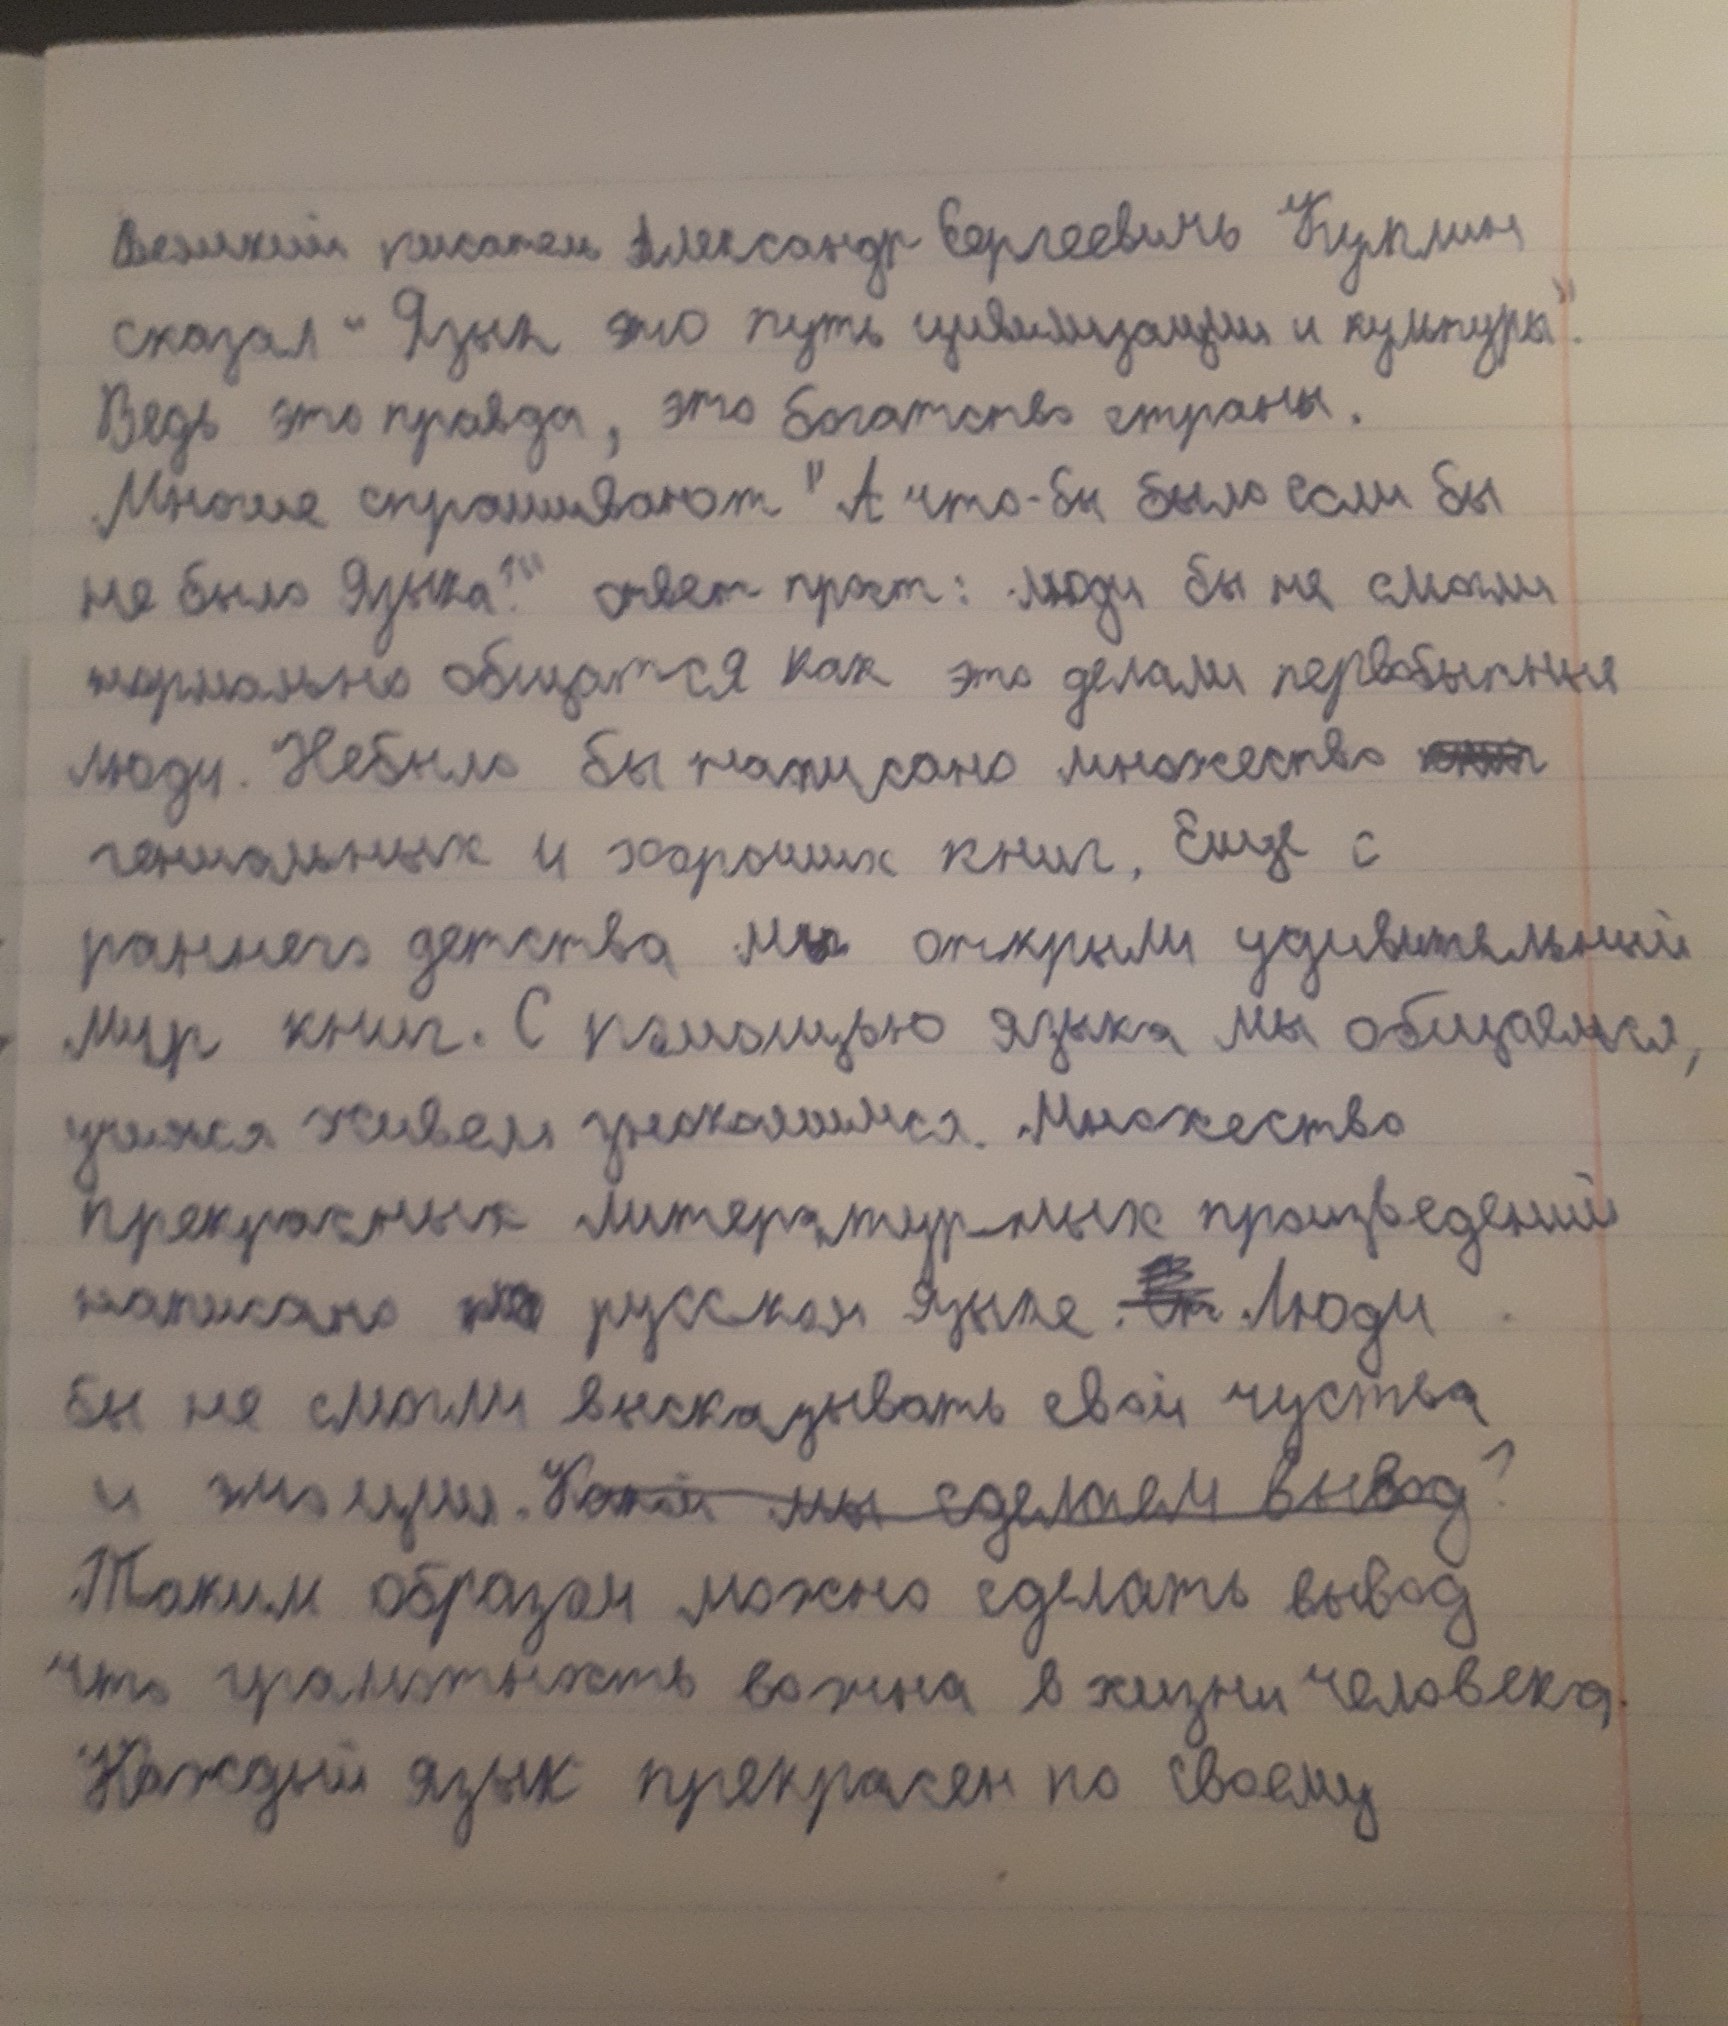 Великий писатель Александр Сергеевичь Куприн
сказал "Язык это путь цивилизации и культуры".
Ведь это правда, это богатство страны.
Многие спрашивают "А что-бы было если бы
не было языка?" ответ прост: люди бы не смогли
нормально общатся как это делали первобытные
люди. Небыло бы написано множество
гениальных и хороших книг. Еще с
раннего детства мы открыли удивительный
мир книг. С помощью языка мы общаемся,
учимся живем знакомимся. Множество
прекрасных литературных произведений
написано на русском языке. Люди
бы не смогли высказывать свои чуства
и эмоции. Какой мы сделаем вывод?
Таким образом можно сделать вывод
что грамотность важна в жизни человека.
Каждый язык прекрасен по своему